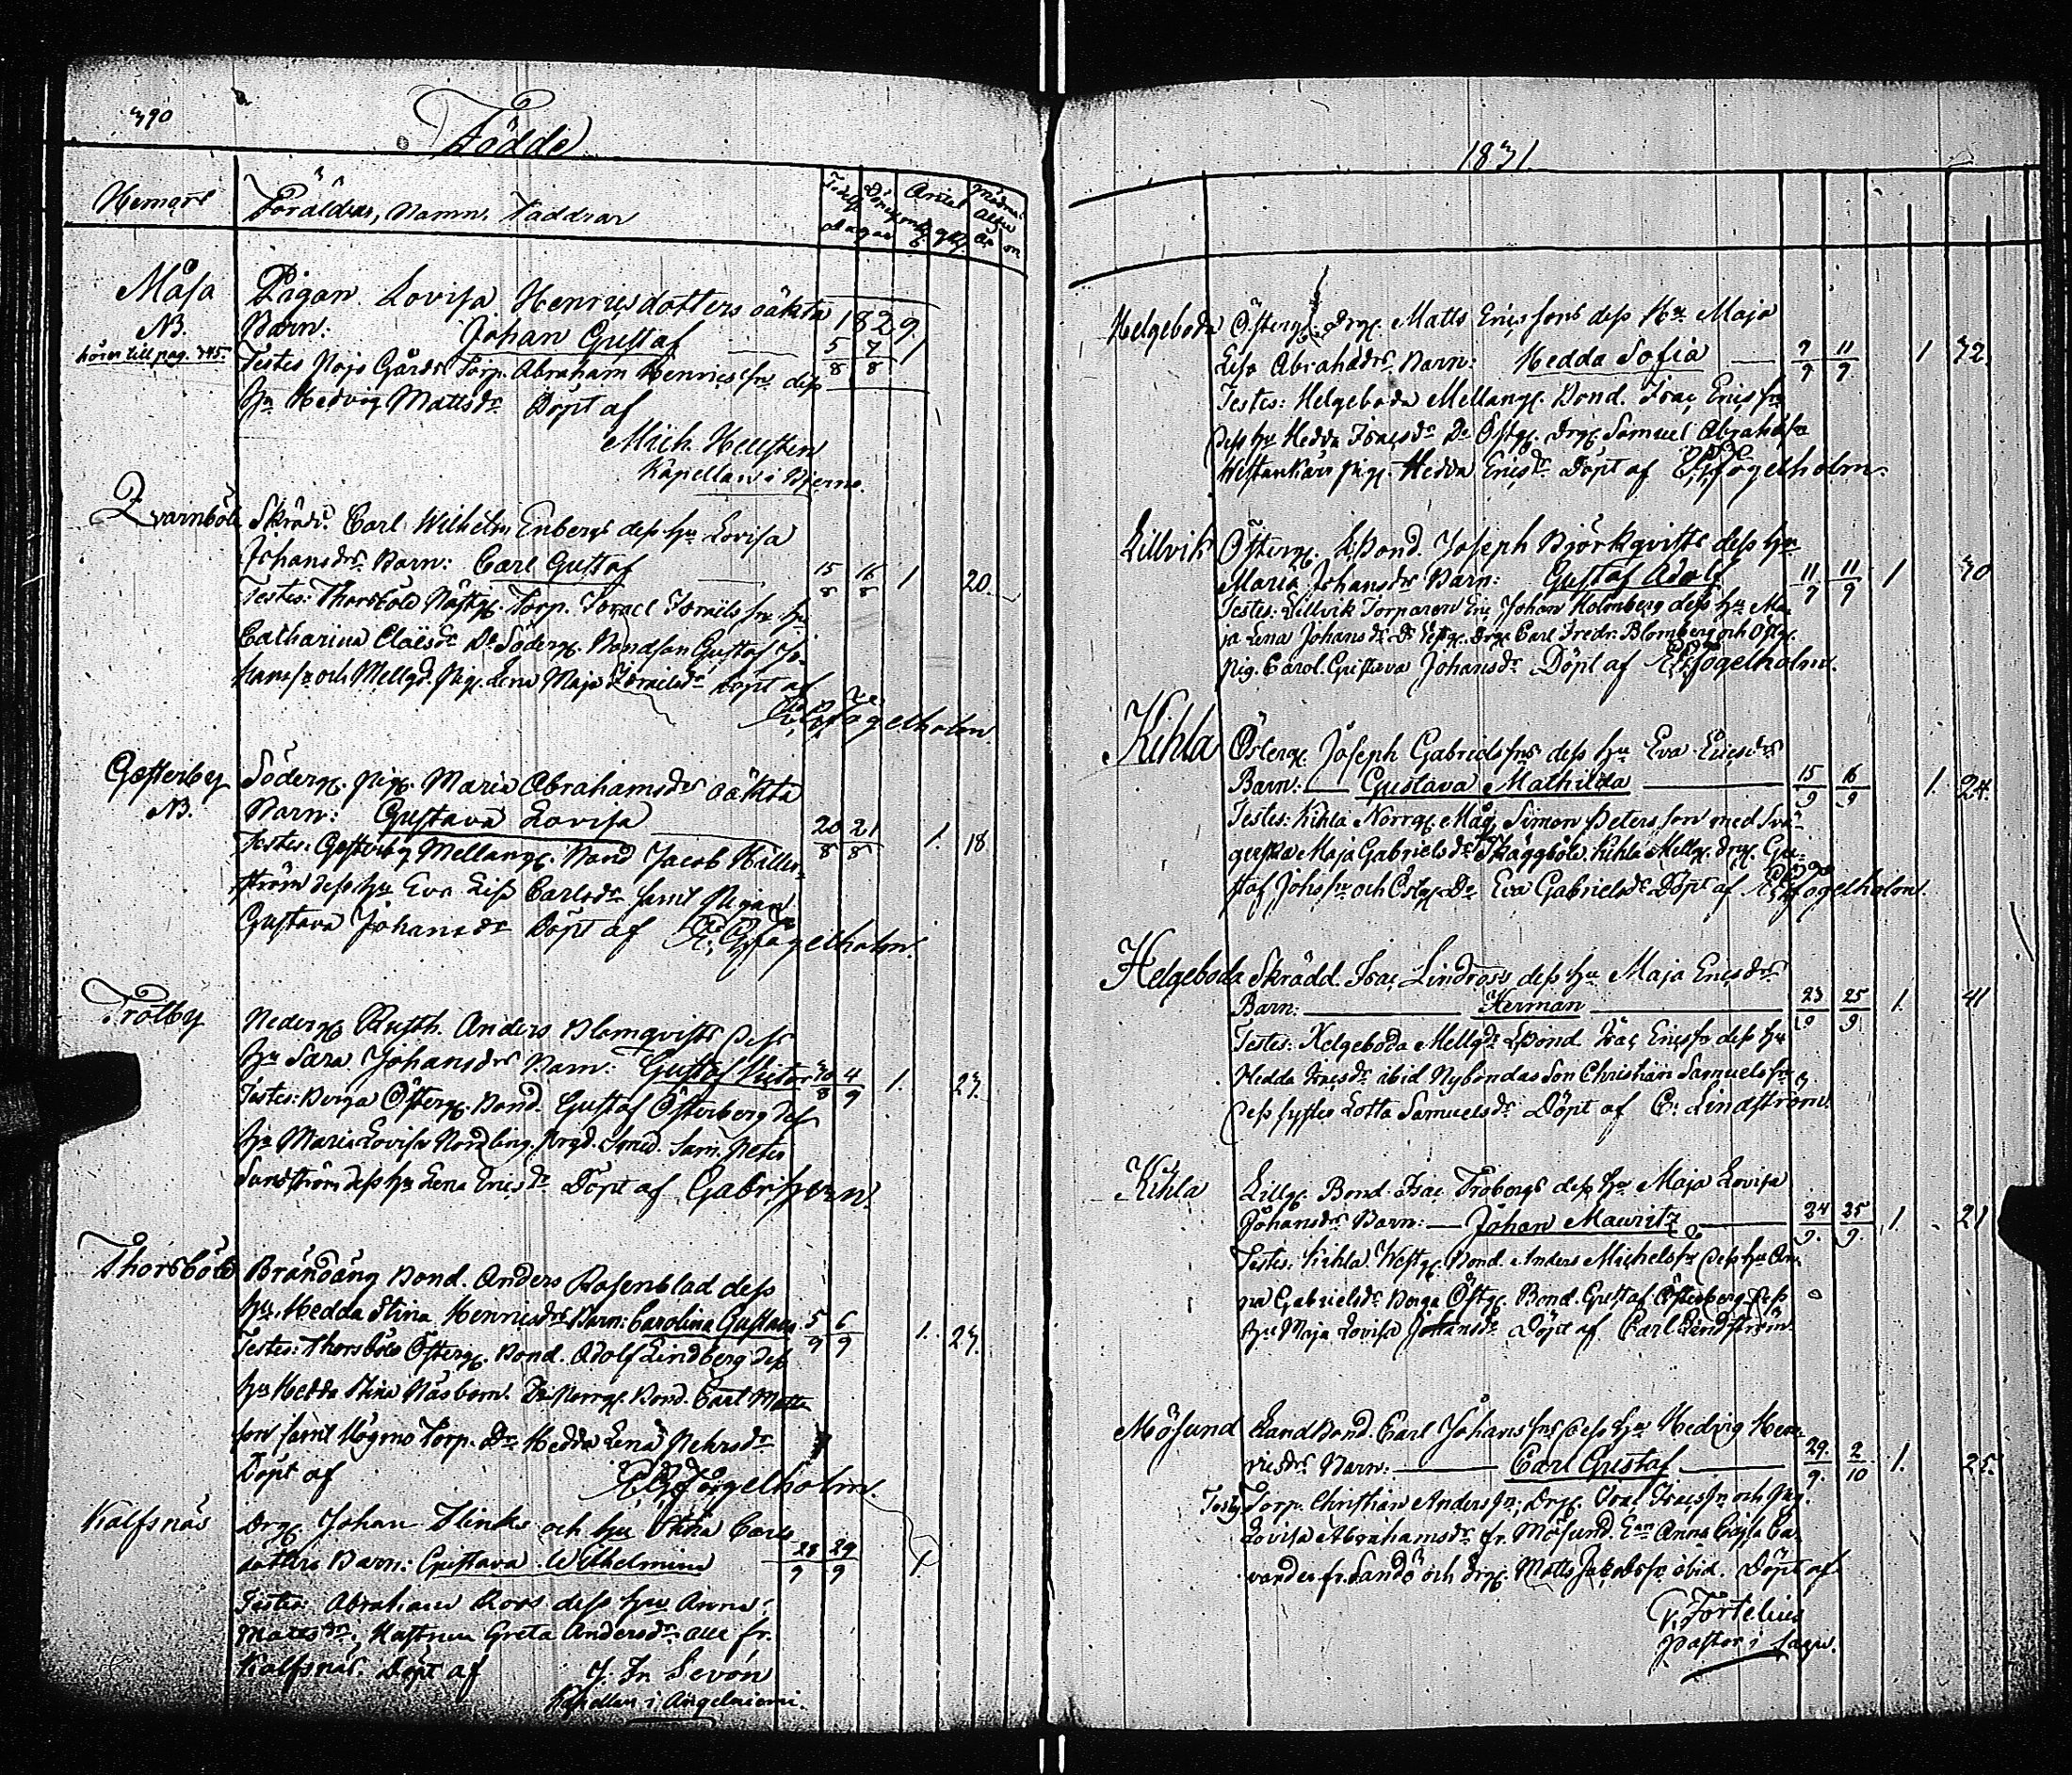 390
Födde
Hemort Föräldrar, Namn, Faddrar
Måsa Pigan Lovisa Henricsdotters oäkta 1829.
NB. Barn: Johan Gustaf 5/8 7/8 1
hörer till pag. 345. Testes Gårds Torp. Abraham Henricssn dess
hu Hedvig Mattsdr Döpt af
Mich. Hellsten
Kapellan i Bjerno.
Qvarnböle Skrädd. Carl Wilhelm Enbergs dess hu Lovisa
Johansdrs Barn: Carl Gustaf 15/8 16/8 1 20.
Testes: Thorsböle Torp. Israel Israelssn hu
Catharina Claësdr Do Söderg. Bondson Gustaf Jo-
hanssn och Mellgd. Pig. Lena Maja Israelsdr Döpt af
Fogelholm.
Gesterby Söderg. Pig. Maria Abrahamsdrs oäkta
NB. Barn: Gustava Lovisa 20/8 21/8 1. 18
Testes: Gesterby Mellang. Bond Jacob Häller-
ström dess hu Eva Lis Carlsdr samt Pigan
Gustava Johansdr Döpt af Fogelholm.
Trotby Nederg. Rusth. Anders Blomqvists dess
hu Sara Johansdrs Barn: Gustaf Victor 30/8 4/9 1. 23.
Testes: Berga Österg. Bond. Gustaf Österberg dess
hu Maria Lovisa Nordling. Smed. Sam. Peter
Sundström dess hu Lena Ericsdr Döpt af Gabr.
Thorsböle Brändäng Bond. Anders Rosenblad dess
hu Hedda Stina Henricsdrs Barn: Carolina Gustava 5/9 6/9 1. 23.
Testes: Thorsböle Österg. Bond. Adolf Lindberg dess
hu Hedda Stina Näsbom. Do Norrg. Bond. Carl Matts
son samt Högmo Torp. Dr Hedda Lena Pehrsdr
Döpt af Fogelholm.
Kalfsnäs Drg. Johan Flinks och hu Stina Carls
dotters Barn: Gustava Wilhelmina 28/9 29/9 1
Testes: Abraham Roos dess hu Anna
Mattsdr, Hustrun Greta Andersdr alla fr.
Kalfsnäs. Döpt af J. Fr. Levón
Kapellan i Angelniemi.
1831.
Helgeboda Österg. Drg. Matts Ericssons dess Hu Maja
Lisa Abrahdrs Barn: Hedda Sofia 9/9 11/9 1 32.
Testes: Helgeboda Mellang. Bond. Isac Ericssn
dess hu Hedda Isacsdr Do Östg. Drg. Samuel Abrahssn
Pig. Hedda Ericsdr Döpt af Fogelholm.
Lillvik Österg. LBond. Joseph Björkqvists dess hu
Maria Johansdrs Barn: Gustaf Adolf 11/9 11/9 1 30
Testes: Lillvik Torparen Eric Johan Holmberg dess hu Ma-
ja Lena Johansdr Do Drg. Carl Fredr. Blomberg och Östg.
Pig. Carol. Gustava Johansdr Döpt af Fogelholm.
Kihla Österg. Joseph Gabrielssns dess hu Eva Ericsdrs
Barn: Gustava Mathilda 15/9 16/9 1. 24.
Testes: Kihla Norrg. Måg Simon Petersson med Svä-
gerska Maja Gabrielsdr Skäggböle. Kihla Mellg. Drg. Gu-
staf Johssn och Östg. Dr Eva Gabrielsdr Döpt af Fogelholm
Helgeboda Skrädd. Isac Lindroos dess hu Maja Ericsdrs
Barn: Herman 23/9 25/9 1. 41
Testes: Helgeboda Mellg. LBond. Isac Ericssn dess hu
Hedda Isacsdr ibid Nybondas Son Christian Samuelssn
dess syster Lotta Samuelsdr Döpt af C: Lindström.
Kihla Lillg. Bond. Isac Frobergs dess hu Maja Lovisa
Johansdrs Barn: Johan Mauritz 24/9. 25/9. 1. 21
Testes: Kihla Westg. Bond. Anders Michelssn dess hu An-
na Gabrielsdr Berga Östg. Bond. Gustaf Österberg dess
hu Maja Lovisa Johansdr Döpt af Carl Lindström
Mösund LandBond. Carl Johanssns dess hu Hedvig Hen-
ricsdrs Barn: Carl Gustaf 29/9. 2/10 1. 25.
Test: Torp. Christian Anderssn, Drg. Isacssn och Pig.
Lovisa Abrahamsdr fr. Mösund. Anna
fr. Sandö och Drg. Matts Jakobssn ibid. Döpt af
Fortelius
Pastor i